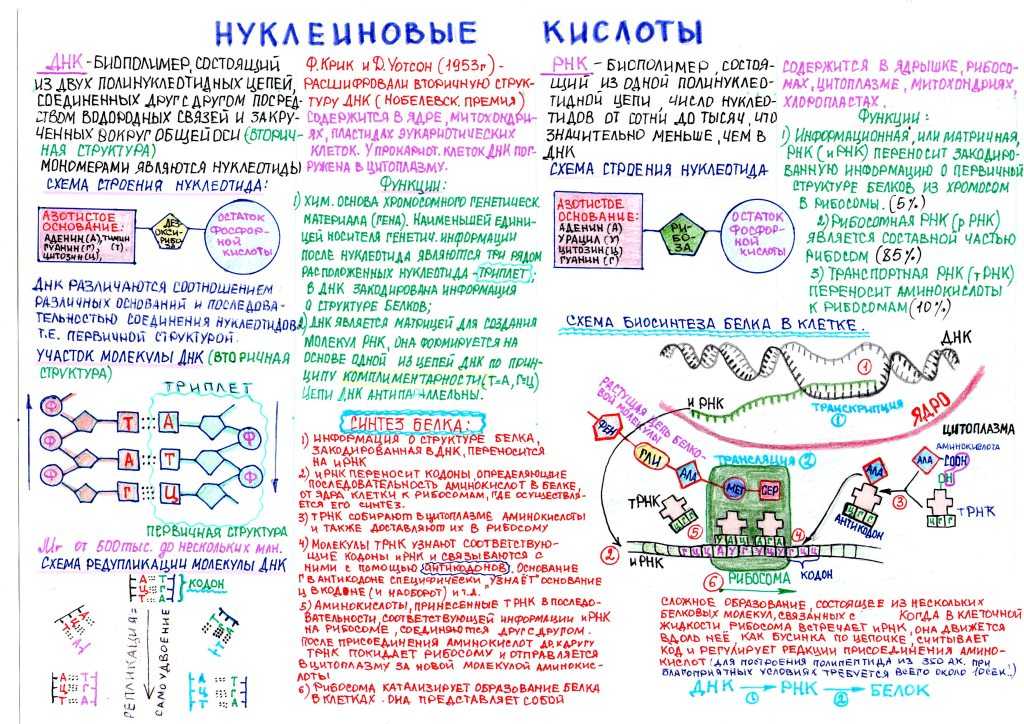 НУКЛЕИНОВЫЕ КИСЛОТЫ
ДНК - БИОПОЛИМЕР, СОСТОЯЩИЙ
ИЗ ДВУХ ПОЛИНУКЛЕОТИДНЫХ ЦЕПЕЙ,
СОЕДИНЕННЫХ ДРУГ С ДРУГОМ ПОСРЕД
СТВОМ ВОДОРОДНЫХ СВЯЗЕЙ И ЗАКРУ-
ЧЕННЫХ ВОКРУГ ОБЩЕЙ ОСИ (ВТОРИЧ-
НАЯ СТРУКТУРА)
МОНОМЕРАМИ ЯВЛЯЮТСЯ НУКЛЕОТИДЫ
СХЕМА СТРОЕНИЯ НУКЛЕОТИДА:
АЗОТИСТОЕ
ОСНОВАНИЕ:
АДЕНИН (А), ТИМИН
ГУАНИН (Г), (Т)
ЦИТОЗИН (Ц),
ДЕЗ
ОКСИ-
РИБО
ЗА
ОСТАТОК
ФОСФОР-
НОЙ
КИСЛОТЫ
ДНК РАЗЛИЧАЮТСЯ СООТНОШЕНИЕМ
РАЗЛИЧНЫХ ОСНОВАНИЙ И ПОСЛЕДОВА-
ТЕЛЬНОСТЬЮ СОЕДИНЕНИЯ НУКЛЕОТИДОВ
Т.Е. ПЕРВИЧНОЙ СТРУКТУРОЙ.
УЧАСТОК МОЛЕКУЛЫ ДНК (ВТОРИЧНАЯ
СТРУКТУРА)
ТРИПЛЕТ
Ф Т А Ф
Ф А Т Ф
Ф Г Ц
ПЕРВИЧНАЯ СТРУКТУРА
Mr ОТ 500 ТЫС. ДО НЕСКОЛЬКИХ МЛН.
СХЕМА РЕДУПЛИКАЦИИ МОЛЕКУЛЫ ДНК
А Т
Ц Г
Т А
КОДОН
РЕПЛИКАЦИЯ=
САМОУДВОЕНИЕ
А Т
Ц Г
Т А
А Т
Ц Г
Т А
Ф. КРИК и Д. УОТСОН (1953г) -
РАСШИФРОВАЛИ ВТОРИЧНУЮ СТРУК-
ТУРУ ДНК (НОБЕЛЕВСК. ПРЕМИЯ)
СОДЕРЖИТСЯ В ЯДРЕ, МИТОХОНДРИ-
ЯХ, ПЛАСТИДАХ ЭУКАРИОТИЧЕСКИХ
КЛЕТОК. У ПРОКАРИОТ. КЛЕТОК ДНК ПОГ-
РУЖЕНА В ЦИТОПЛАЗМУ.
ФУНКЦИИ:
1) ХИМ. ОСНОВА ХРОМОСОМНОГО ГЕНЕТИЧЕСК.
МАТЕРИАЛА (ГЕНА). НАИМЕНЬШЕЙ ЕДИНИ-
ЦЕЙ НОСИТЕЛЯ ГЕНЕТИЧ. ИНФОРМАЦИИ
ПОСЛЕ НУКЛЕОТИДА ЯВЛЯЮТСЯ ТРИ РЯДОМ
РАСПОЛОЖЕННЫХ НУКЛЕОТИДА - ТРИПЛЕТ;
В ДНК ЗАКОДИРОВАНА ИНФОРМАЦИЯ
О СТРУКТУРЕ БЕЛКОВ;
2) ДНК ЯВЛЯЕТСЯ МАТРИЦЕЙ ДЛЯ СОЗДАНИЯ
МОЛЕКУЛ РНК, ОНА ФОРМИРУЕТСЯ НА
ОСНОВЕ ОДНОЙ ИЗ ЦЕПЕЙ ДНК ПО ПРИН-
ЦИПУ КОМПЛИМЕНТАРНОСТИ (Т=А, Г=Ц)
ЦЕПИ ДНК АНТИПАРАЛЛЕЛЬНЫ.
СИНТЕЗ БЕЛКА:
1) ИНФОРМАЦИЯ О СТРУКТУРЕ БЕЛКА,
ЗАКОДИРОВАННАЯ В ДНК, ПЕРЕНОСИТСЯ
НА иРНК
2) иРНК ПЕРЕНОСИТ КОДОНЫ, ОПРЕДЕЛЯЮЩИЕ
ПОСЛЕДОВАТЕЛЬНОСТЬ АМИНОКИСЛОТ В БЕЛКЕ,
ОТ ЯДРА КЛЕТКИ К РИБОСОМАМ, ГДЕ ОСУЩЕСТВЛЯ-
ЕТСЯ ЕГО СИНТЕЗ.
3) тРНК СОБИРАЮТ В ЦИТОПЛАЗМЕ АМИНОКИСЛОТЫ
И ТАКЖЕ ДОСТАВЛЯЮТ ИХ В РИБОСОМУ
4) МОЛЕКУЛЫ тРНК УЗНАЮТ СООТВЕТСТВУЮ-
ЩИЕ КОДОНЫ иРНК И СВЯЗЫВАЮТСЯ С
НИМИ С ПОМОЩЬЮ АНТИКОДОНОВ. ОСНОВАНИЕ
Г В АНТИКОДОНЕ СПЕЦИФИЧЕСКИ „УЗНАЁТ" ОСНОВАНИЕ
Ц В КОДОНЕ (И НАОБОРОТ) И Т.Д.
5) АМИНОКИСЛОТЫ, ПРИНЕСЕННЫЕ тРНК В ПОСЛЕДО-
ВАТЕЛЬНОСТИ, СООТВЕТСТВУЮЩЕЙ ИНФОРМАЦИИ иРНК
НА РИБОСОМЕ, СОЕДИНЯЮТСЯ ДРУГ С ДРУГОМ.
ПОСЛЕ ПРИСОЕДИНЕНИЯ АМИНОКИСЛОТ ДР. К ДРУГУ
тРНК ПОКИДАЕТ РИБОСОМУ И ОТПРАВЛЯЕТСЯ
В ЦИТОПЛАЗМУ ЗА НОВОЙ МОЛЕКУЛОЙ АМИНОКИС-
ЛОТЫ
6) РИБОСОМА КАТАЛИЗИРУЕТ ОБРАЗОВАНИЕ БЕЛКА
В КЛЕТКАХ. ОНА ПРЕДСТАВЛЯЕТ СОБОЙ
РНК - БИОПОЛИМЕР, СОСТОЯ-
ЩИЙ ИЗ ОДНОЙ ПОЛИНУКЛЕО-
ТИДНОЙ ЦЕПИ, ЧИСЛО НУКЛЕО-
ТИДОВ ОТ СОТНИ ДО ТЫСЯЧ, ЧТО
ЗНАЧИТЕЛЬНО МЕНЬШЕ, ЧЕМ В
ДНК
СХЕМА СТРОЕНИЯ НУКЛЕОТИДА
АЗОТИСТОЕ
ОСНОВАНИЕ:
АДЕНИН (А)
УРАЦИЛ (У)
ЦИТОЗИН (Ц)
ГУАНИН (Г)
РИ-
БО-
ЗА
ОСТАТОК
ФОСФОР-
НОЙ
КИСЛОТЫ
СОДЕРЖИТСЯ В ЯДРЫШКЕ, РИБОСО-
МАХ, ЦИТОПЛАЗМЕ, МИТОХОНДРИЯХ,
ХЛОРОПЛАСТАХ.
ФУНКЦИИ:
1) ИНФОРМАЦИОННАЯ, ИЛИ МАТРИЧНАЯ,
РНК (иРНК) ПЕРЕНОСИТ ЗАКОДИРО-
ВАННУЮ ИНФОРМАЦИЮ О ПЕРВИЧНОЙ
СТРУКТУРЕ БЕЛКОВ ИЗ ХРОМОСОМ
В РИБОСОМЫ. (5%)
2) РИБОСОМНАЯ РНК (рРНК)
ЯВЛЯЕТСЯ СОСТАВНОЙ ЧАСТЬЮ
РИБОСОМ (85%)
3) ТРАНСПОРТНАЯ РНК (тРНК)
ПЕРЕНОСИТ АМИНОКИСЛОТЫ
К РИБОСОМАМ (10%)
СХЕМА БИОСИНТЕЗА БЕЛКА В КЛЕТКЕ.
ДНК
1
иРНК
ТРАНСКРИПЦИЯ
1
ЯДРО
ЦИТОПЛАЗМА
РАСТУЩАЯ ЦЕПЬ БЕЛКО-
ВОЙ МОЛЕКУЛЫ
ФЕН
ГЛИ
АЛА
МЕТ
СЕР
ТРАНСЛЯЦИЯ 2
АЛА
АЛА
АМИНОКИСЛОТА
COOH
тРНК
ЦГГ
5
УАЦ АГА
4
ЦГГ
АНТИКОДОН
3
ЦГГ
тРНК
2
иРНК
6 РИБОСОМА
КОДОН
СЛОЖНОЕ ОБРАЗОВАНИЕ, СОСТОЯЩЕЕ ИЗ НЕСКОЛЬКИХ
БЕЛКОВЫХ МОЛЕКУЛ, СВЯЗАННЫХ С КОГДА В КЛЕТОЧНОЙ
ЖИДКОСТИ РИБОСОМА ВСТРЕЧАЕТ иРНК, ОНА ДВИЖЕТСЯ
ВДОЛЬ НЕЁ КАК БУСИНКА ПО ЦЕПОЧКЕ, СЧИТЫВАЕТ
КОД И РЕГУЛИРУЕТ РЕАКЦИИ ПРИСОЕДИНЕНИЯ АМИНО-
КИСЛОТ (ДЛЯ ПОСТРОЕНИЯ ПОЛИПЕПТИДА ИЗ 350 АК. ПРИ
БЛАГОПРИЯТНЫХ УСЛОВИЯХ ТРЕБУЕТСЯ ВСЕГО ОКОЛО 10СЕК..)
ДНК → РНК → БЕЛОК
1 2